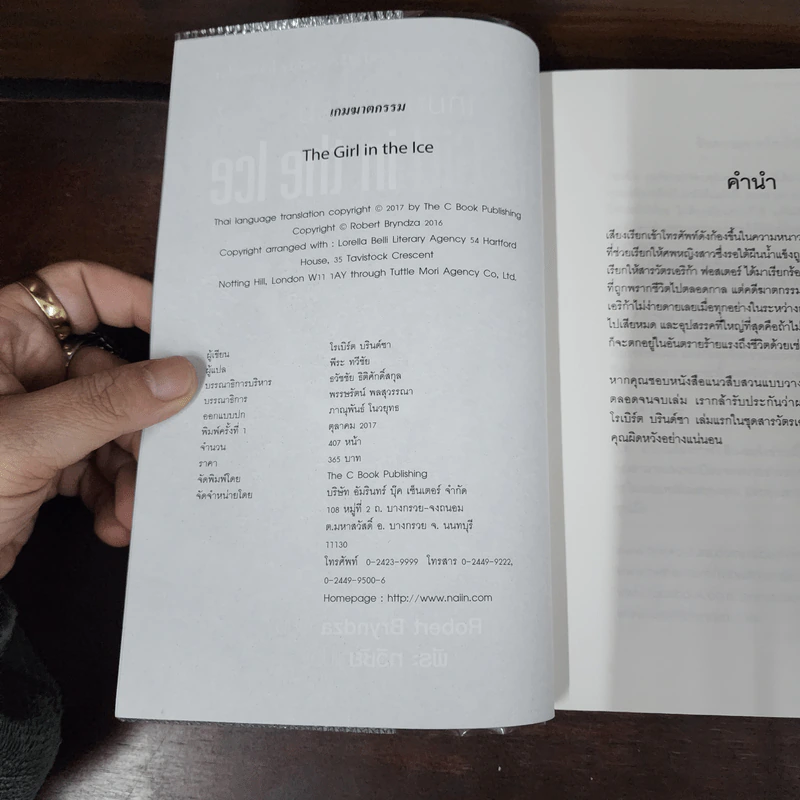 เกมฆาตกรรม
The Girl in the Ice
Thai language translation copyright © 2017 by The C Book Publishing
Copyright © Robert Bryndza 2016
Copyright arranged with : Lorella Belli Literary Agency 54 Hartford
House, 35 Tavistock Crescent
Notting Hill, London W11 1AY through Tuttle Mori Agency Co, Ltd.
ผู้เขียน โรเบิร์ต บรินด์ซา
ผู้แปล พีระ ทวีชัย
บรรณาธิการบริหาร ธวัชชัย ธิติศักดิ์สกุล
บรรณาธิการ พรรษรัตน์ พลสุวรรณา
ออกแบบปก ภาณุพันธ์ โนวยุทธ
พิมพ์ครั้งที่ 1 ตุลาคม 2017
จำนวน 407 หน้า
ราคา 365 บาท
จัดพิมพ์โดย The C Book Publishing
จัดจำหน่ายโดย บริษัท อัมรินทร์ บุ๊ค เซ็นเตอร์ จำกัด
108 หมู่ที่ 2 ถ. บางกรวย-จงถนอม
ต.มหาสวัสดิ์ อ. บางกรวย จ. นนทบุรี
11130
โทรศัพท์ 0-2423-9999 โทรสาร 0-2449-9222,
0-2449-9500-6
Homepage : http://www.naiin.com
คำนำ
เสียงเรียกเข้าโทรศัพท์ดังก้องขึ้นในความหนาว
ที่ช่วยเรียกให้ศพหญิงสาวซึ่งรอใต้ผืนน้ำแข็งถู
เรียกให้สารวัตรเอริก้า ฟอสเตอร์ ได้มาเรียกร้อ
ที่ถูกพรากชีวิตไปตลอดกาล แต่คดีฆาตกรรม
เอริก้าไม่ง่ายดายเลยเมื่อทุกอย่างในระหว่าง
ไปเสียหมด และอุปสรรคที่ใหญ่ที่สุดคือถ้าไม่
ก็จะตกอยู่ในอันตรายร้ายแรงถึงชีวิตด้วยเช่
หากคุณชอบหนังสือแนวสืบสวนแบบวาง
ตลอดจนจบเล่ม เรากล้ารับประกันว่าผ
โรเบิร์ต บรินด์ซา เล่มแรกในชุดสารวัตรเอ
คุณผิดหวังอย่างแน่นอน